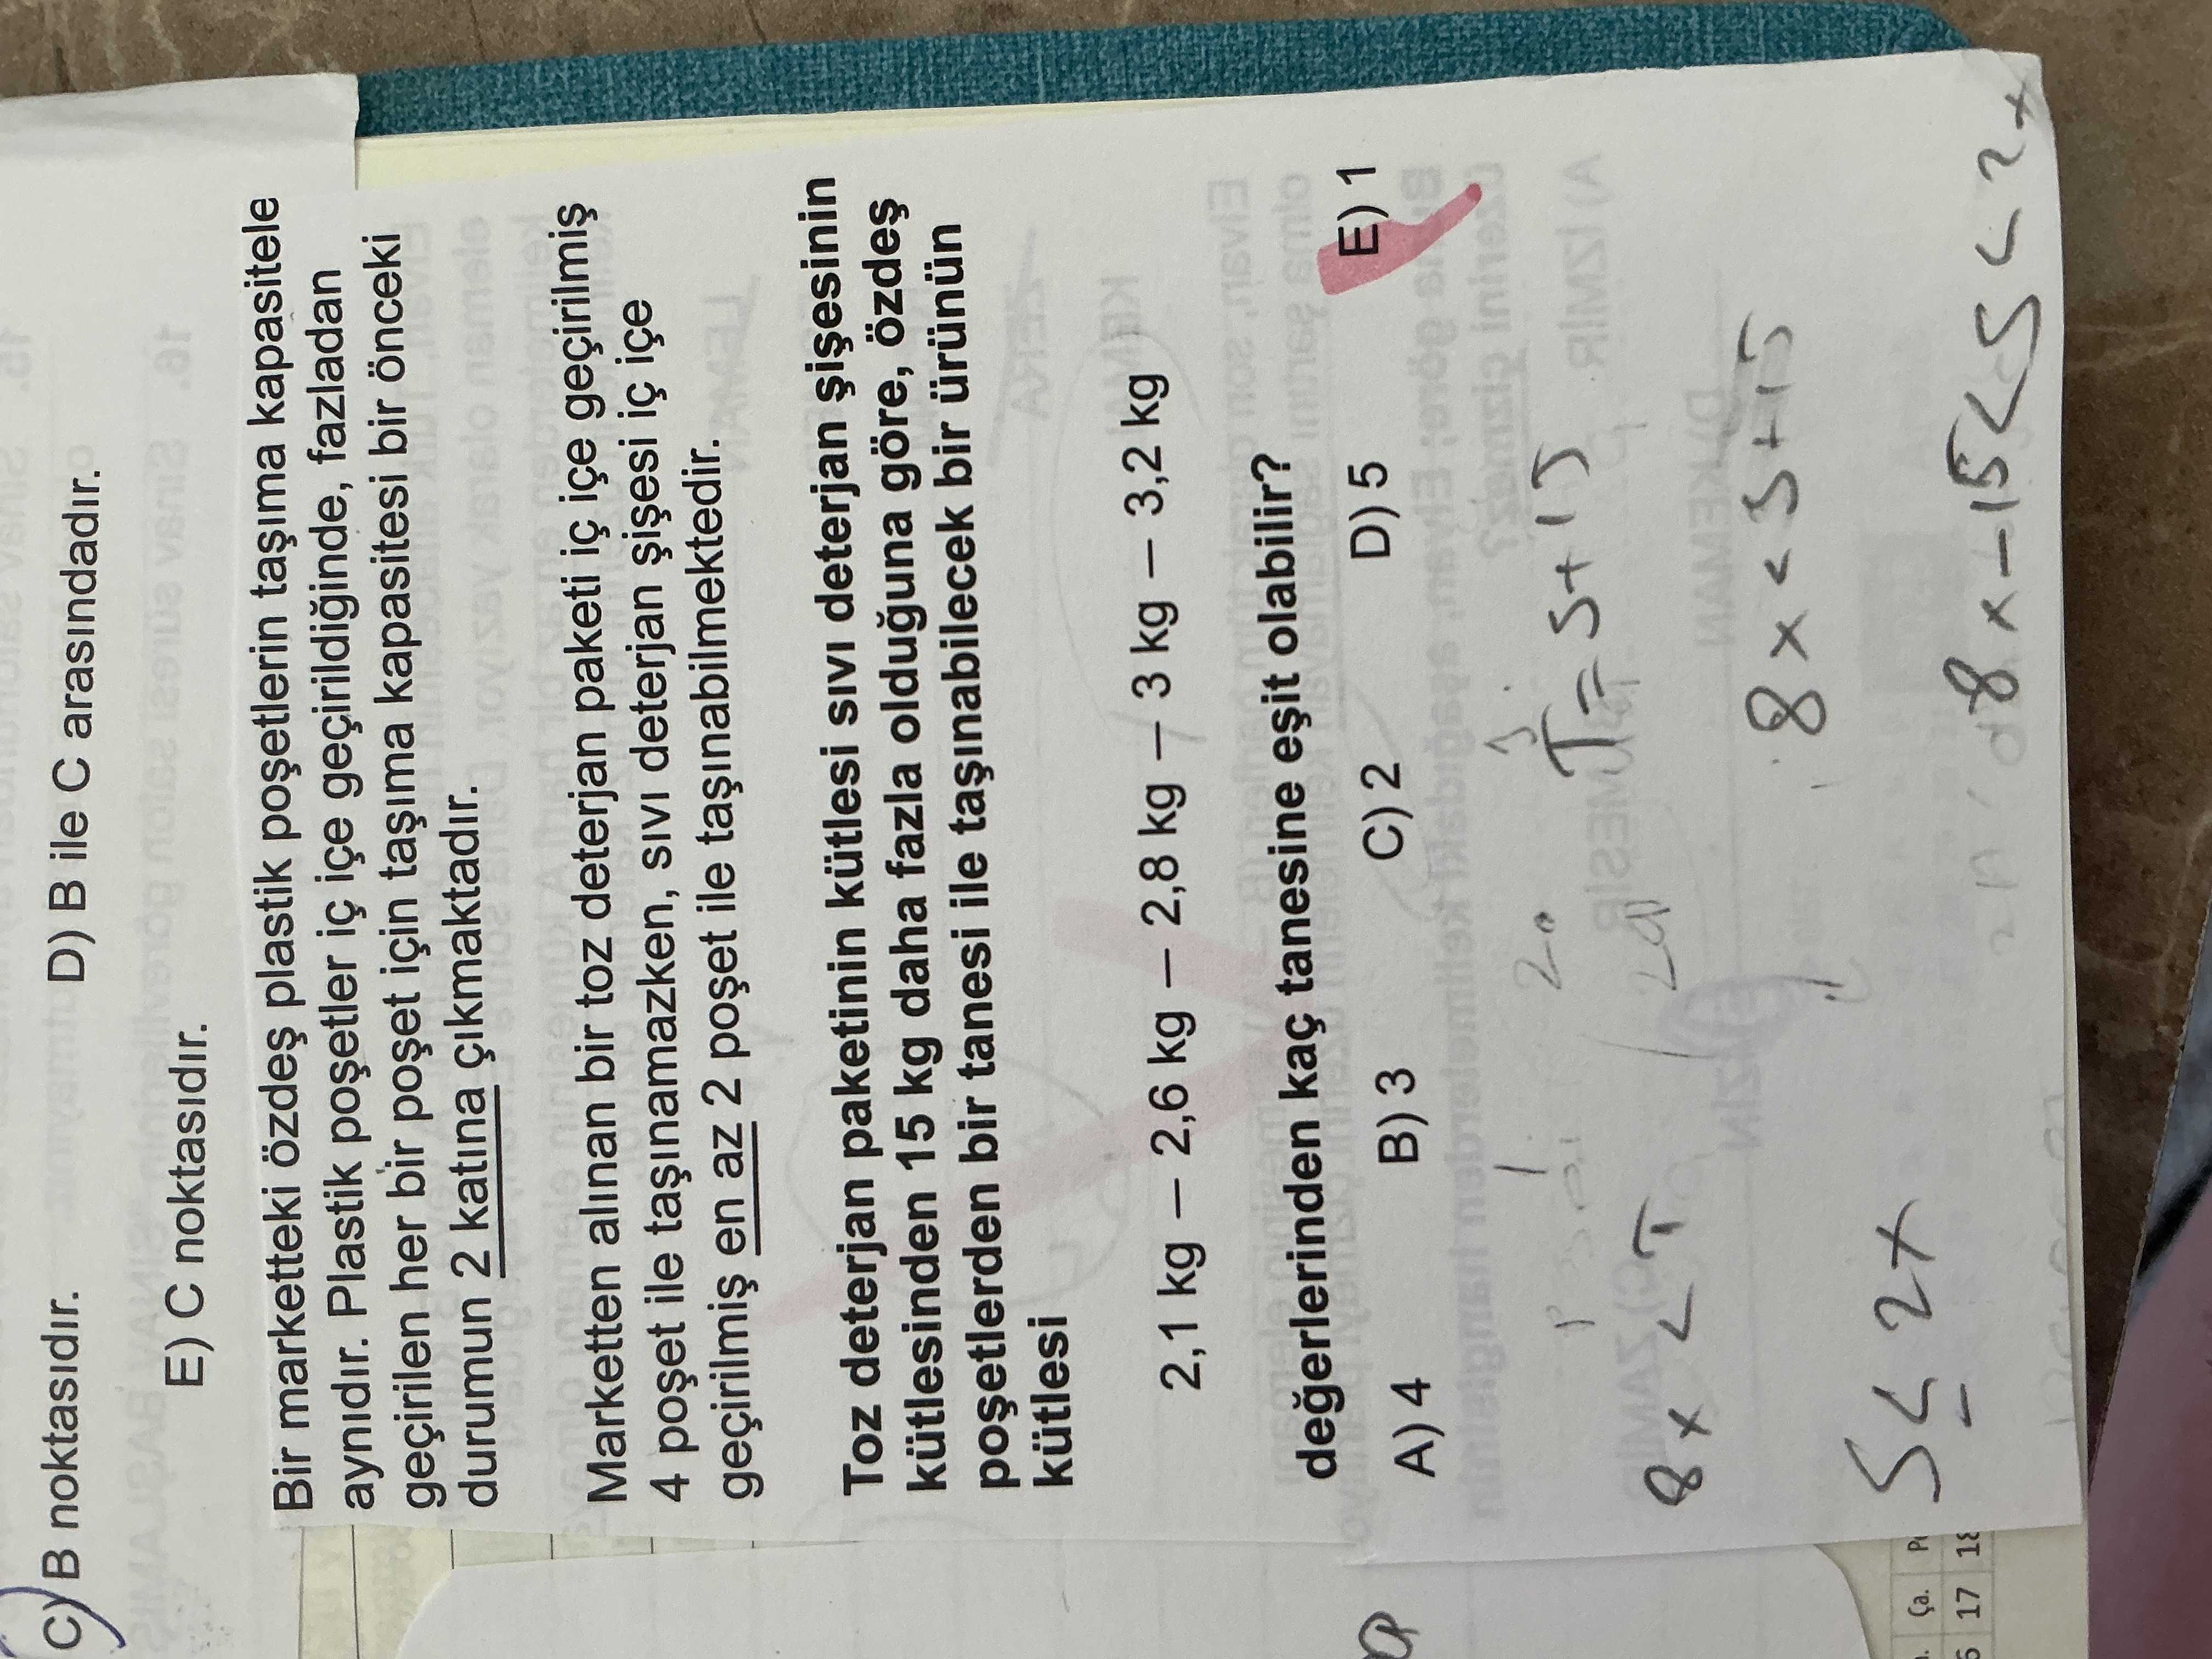 C) B noktasıdır.
D) B ile C arasındadır.
E) C noktasıdır.
Bir marketteki özdeş plastik poşetlerin taşıma kapasitele
aynıdır. Plastik poşetler iç içe geçirildiğinde, fazladan
geçirilen her bir poşet için taşıma kapasitesi bir önceki
durumun 2 katına çıkmaktadır.
Marketten alınan bir toz deterjan paketi iç içe geçirilmiş
4 poşet ile taşınamazken, sıvı deterjan şişesi iç içe
geçirilmiş en az 2 poşet ile taşınabilmektedir.
Toz deterjan paketinin kütlesi sıvı deterjan şişesinin
kütlesinden 15 kg daha fazla olduğuna göre, özdeş
poşetlerden bir tanesi ile taşınabilecek bir ürünün
kütlesi
2,1 kg – 2,6 kg – 2,8 kg – 3 kg – 3,2 kg
değerlerinden kaç tanesine eşit olabilir?
A) 4 B) 3 C) 2 D) 5 E) 1
T = S + 15
8x < T
8x < S + 15
S ≤ 2x
8x - 15 < S < 2x
Ça.
17 18